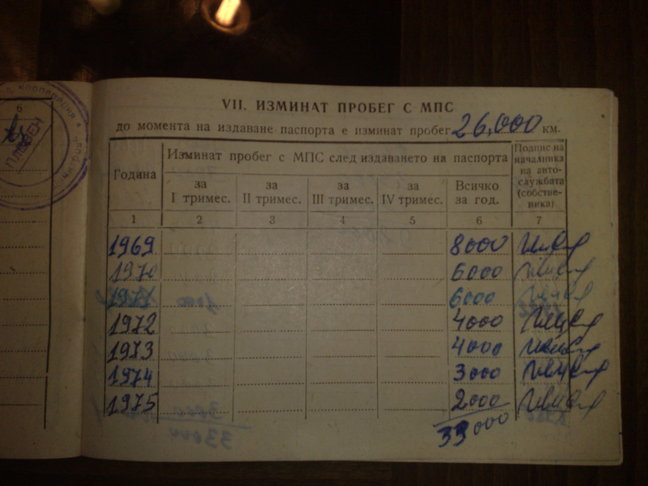 VII. ИЗМИНАТ ПРОБЕГ С МПС
до момента на издаване паспорта е изминат пробег 26,000 км.
Година
Изминат пробег с МПС след издаването на паспорта
Подпис на началника на авто-службата (собстве-ника)
за I тримес.
за II тримес.
за III тримес.
за IV тримес.
Всичко за год.
1 2 3 4 5 6 7
1969 8000
1970 6000
1971 6000
1972 4000
1973 4000
1974 3000
1975 2000
33000
6
ПЛЕВЕН